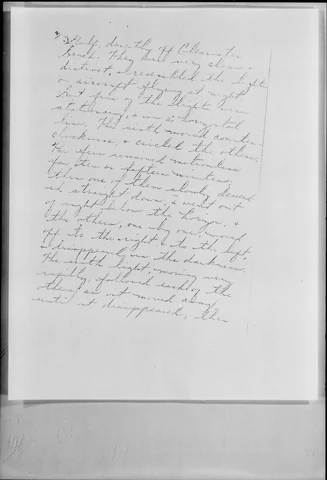 Gulf, directly off Clearwater
Beach. They were very clear &
distinct, & resembled the lights
on aircraft flying at night.
But five of the lights were
stationary, & in a horizontal
line. The sixth moved counter
clockwise, & circled the others.
The five remained motionless
for ten or fifteen minutes
then one of them slowly moved
straight down, & went out
of sight below the horizon, &
the others, one by one, moved
off to the right & to the left,
& disappeared in the darkness.
The sixth light, moving very
rapidly, followed each of the
others as it moved away
until it disappeared, then